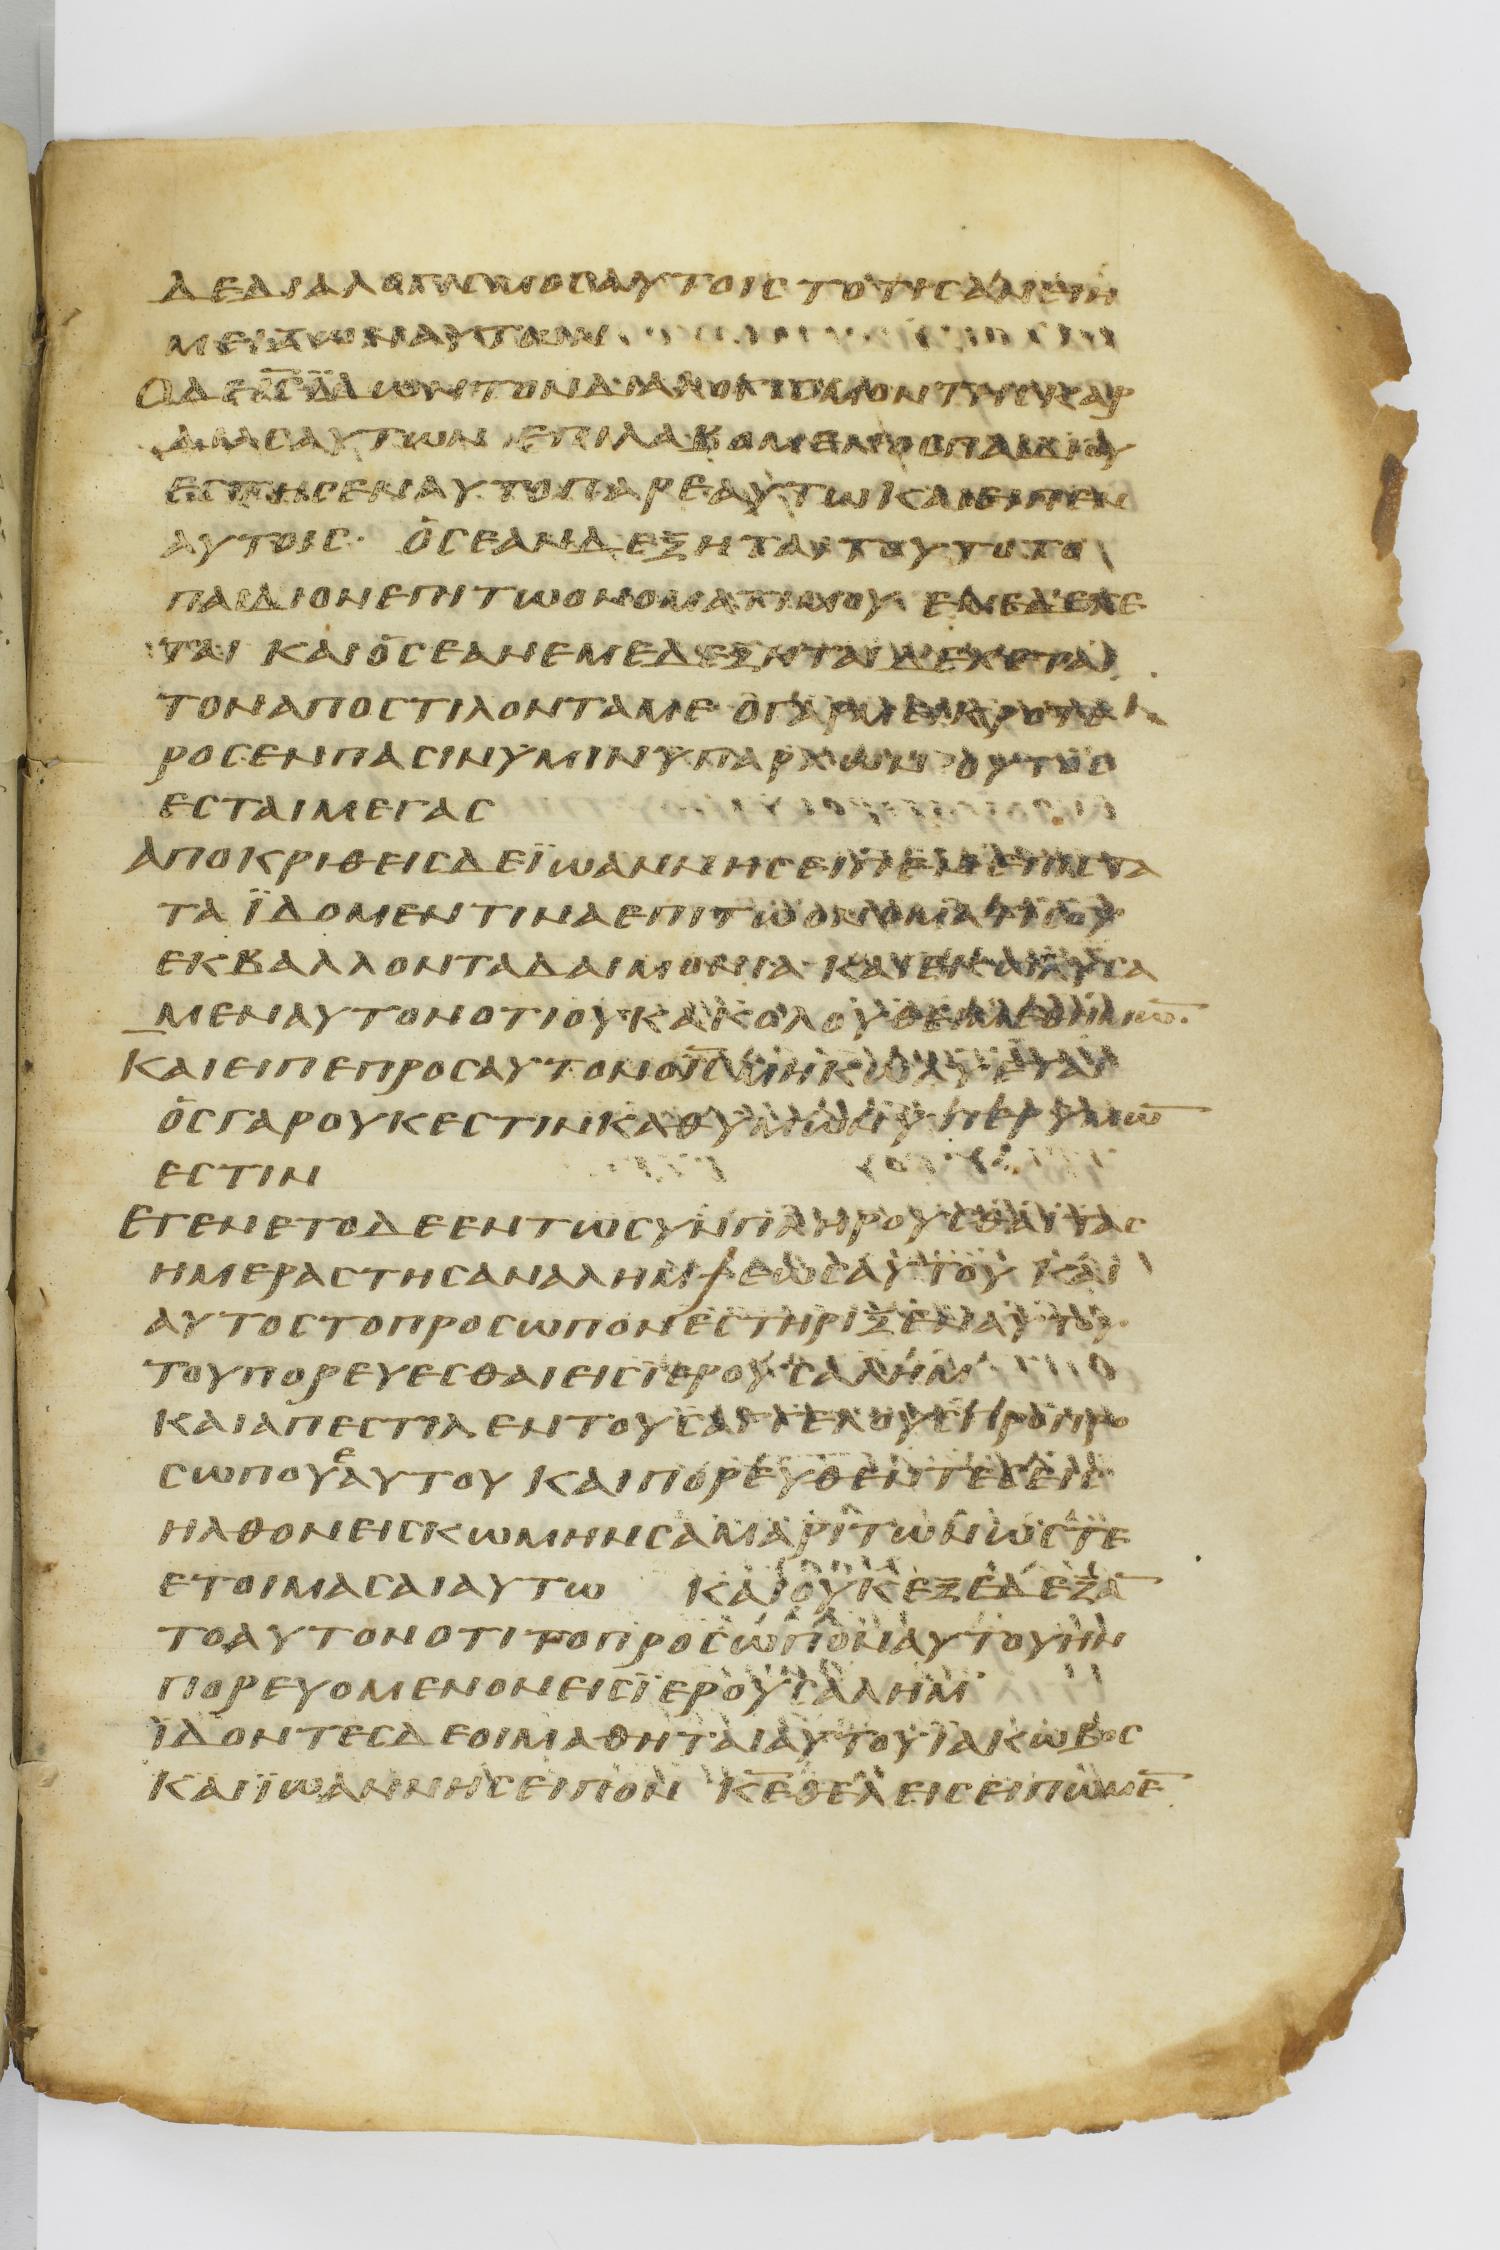 ΔΕΔΙΑΛΟΓΙϹΜΟϹΑΥΤΟΙϹ ΤΟΤΙϹΑΝΕΙΗ
ΜΕΙΖΩΝΑΥΤΩΝ
ΟΔΕΙ̅Ϲ̅ΪΔΩΝΤΟΝΔΙΑΛΟΓΙϹΜΟΝΤΗϹΚΑΡ
ΔΙΑϹΑΥΤΩΝ ΕΠΙΛΑΒΟΜΕΝΟϹΠΑΙΔΙΟΝ
ΕϹΤΗϹΕΝΑΥΤΟΠΑΡΕΑΥΤΩΚΑΙΕΙΠΕΝ
ΑΥΤΟΙϹ· ΟϹΕΑΝΔΕΞΗΤΑΙΤΟΥΤΟΤΟ
ΠΑΙΔΙΟΝΕΠΙΤΩΟΝΟΜΑΤΙΜΟΥ ΕΜΕΔΕΧΕ
ΤΑΙ ΚΑΙΟϹΕΑΝΕΜΕΔΕΞΗΤΑΙΔΕΧΕΤΑΙ
ΤΟΝΑΠΟϹΤΙΛΟΝΤΑΜΕ ΟΓΑΡΜΕΙΚΡΟΤΕ
ΡΟϹΕΝΠΑϹΙΝΥΜΙΝΥΠΑΡΧΩΝ ΟΥΤΟϹ
ΕϹΤΑΙΜΕΓΑϹ
ΑΠΟΚΡΙΘΕΙϹΔΕΪΩΑΝΝΗϹΕΙΠΕΝΕΠΙϹΤΑ
ΤΑ ΪΔΟΜΕΝΤΙΝΑΕΠΙΤΩΟΝΟΜΑΤΙϹΟΥ
ΕΚΒΑΛΛΟΝΤΑΔΑΙΜΟΝΙΑ ΚΑΙΕΚΩΛΥϹΑ
ΜΕΝΑΥΤΟΝΟΤΙΟΥΚΑΚΟΛΟΥΘΕΙΜΕΘΗΜΩ̅
ΚΑΙΕΙΠΕΠΡΟϹΑΥΤΟΝΟΙ̅Ϲ̅ΜΗΚΩΛΥΕΤΑΙ
ΟϹΓΑΡΟΥΚΕϹΤΙΝΚΑΘΥΜΩΝΥΠΕΡΥΜΩ̅
ΕϹΤΙΝ
ΕΓΕΝΕΤΟΔΕΕΝΤΩϹΥΝΠΛΗΡΟΥϹΘΑΙΤΑϹ
ΗΜΕΡΑϹΤΗϹΑΝΑΛΗΜΨΕΩϹΑΥΤΟΥ ΚΑΙ
ΑΥΤΟϹΤΟΠΡΟϹΩΠΟΝΕϹΤΗΡΙΞΕΝΑΥΤΟΥ
ΤΟΥΠΟΡΕΥΕϹΘΑΙΕΙϹΪΕΡΟΥϹΑΛΗΜ
ΚΑΙΑΠΕϹΤΙΛΕΝΤΟΥϹΑΓΓΕΛΟΥϹΠΡΟΠΡΟ
ϹΩΠΟΥΕΑΥΤΟΥ ΚΑΙΠΟΡΕΥΘΕΝΤΕϹΕΙϹ
ΗΛΘΟΝΕΙϹΚΩΜΗΝϹΑΜΑΡΙΤΩΝΩϹΤΕ
ΕΤΟΙΜΑϹΑΙΑΥΤΩ ΚΑΙΟΥΚΕΞΕΔΕΞΑ̅
ΤΟΑΥΤΟΝΟΤΙΤΟΠΡΟϹΩΠΟΝΑΥΤΟΥΗΝ
ΠΟΡΕΥΟΜΕΝΟΝΕΙϹΪΕΡΟΥϹΑΛΗΜ
ΪΔΟΝΤΕϹΔΕΟΙΜΑΘΗΤΑΙΑΥΤΟΥΪΑΚΩΒΟϹ
ΚΑΙΪΩΑΝΝΗϹΕΙΠΟΝ Κ̅Ε̅ΘΕΛΕΙϹΕΙΠΩΜΕ̅